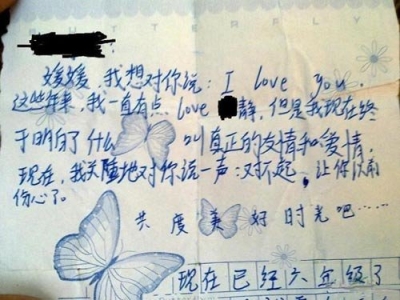 UTTERFLY
媛媛,我想对你说:I love you.
这些年来,我一直有点love 静,但是我现在终
于明白了什么叫真正的友情和爱情,
现在,我地对你说一声:对不起,让你
伤心了。
共度美好时光吧……
现在已经六年级了